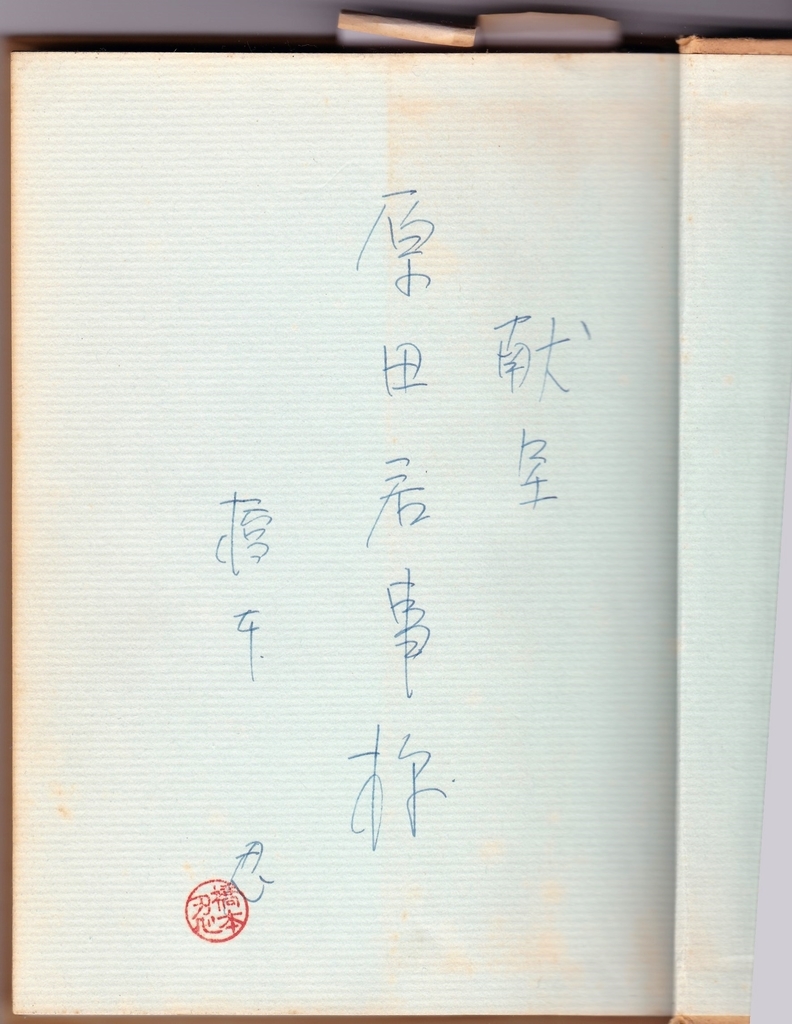 献呈
原田居事様
橋本 忍
橋本忍